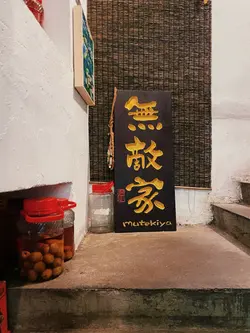 無敵家
mutekiya